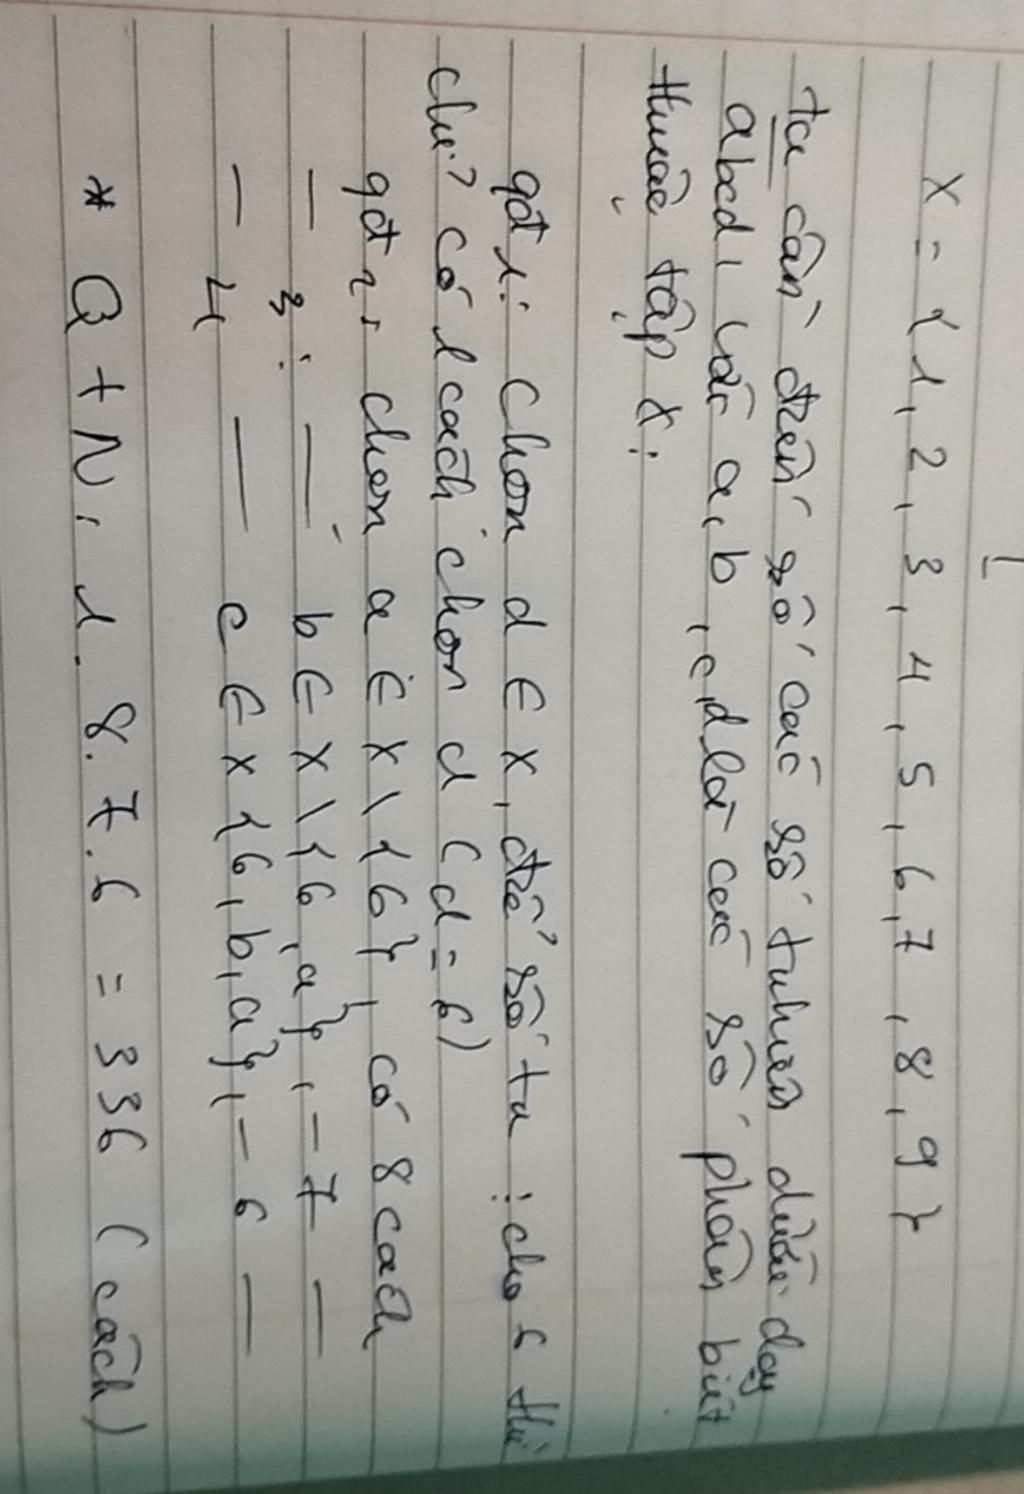 X = {1, 2, 3, 4, 5, 6, 7, 8, 9}
ta cần đếm số các số tự nhiên dưới dạng
abcd, với a, b, c, d là các số phân biệt
thuộc tập X:
gđ 1: Chọn d ∈ X, để số ta ⋮ cho 6 thì
chỉ có 1 cách chọn d (d = 6)
gđ 2: chọn a ∈ X \ {6}, có 8 cách
— 3 : — b ∈ X \ {6, a}, — 7 —
— 4 — c ∈ X {6, b, a}, — 6 —
* Q t N: 1. 8. 7. 6 = 336 (cách)